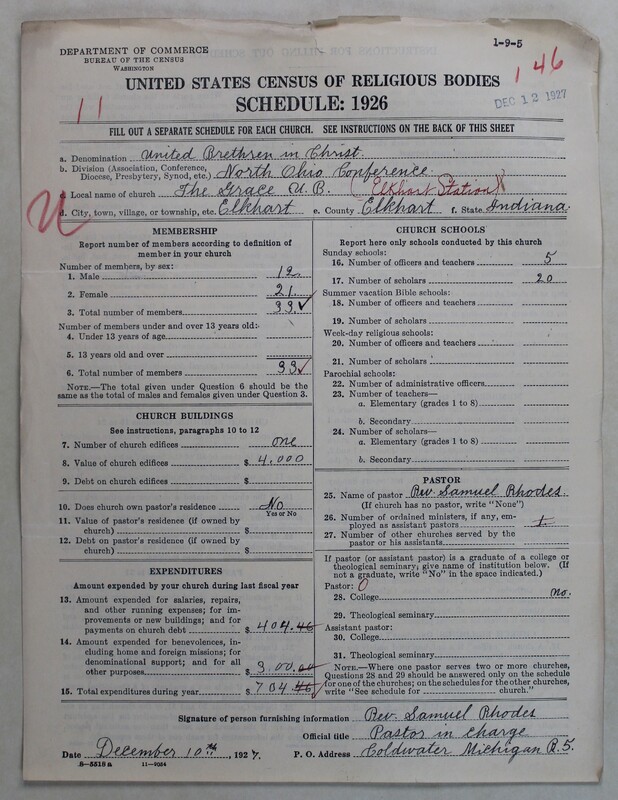 1-9-5
DEPARTMENT OF COMMERCE
BUREAU OF THE CENSUS
WASHINGTON
1 46
DEC 12 1927
UNITED STATES CENSUS OF RELIGIOUS BODIES
11
SCHEDULE: 1926
FILL OUT A SEPARATE SCHEDULE FOR EACH CHURCH. SEE INSTRUCTIONS ON THE BACK OF THIS SHEET
a. Denomination United Brethren in Christ.
b. Division (Association, Conference, Diocese, Presbytery, Synod, etc.) North Ohio Conference.
c. Local name of church The Grace U.B. (Elkhart Station)
d. City, town, village, or township, etc. Elkhart e. County Elkhart f. State Indiana.
MEMBERSHIP
Report number of members according to definition of
member in your church
Number of members, by sex:
1. Male 12
2. Female 21
3. Total number of members 33 ✓
Number of members under and over 13 years old:
4. Under 13 years of age
5. 13 years old and over
6. Total number of members 33 ✓
NOTE.—The total given under Question 6 should be the
same as the total of males and females given under Question 3.
CHURCH BUILDINGS
See instructions, paragraphs 10 to 12
7. Number of church edifices one
8. Value of church edifices $ 4,000
9. Debt on church edifices $
10. Does church own pastor's residence No
Yes or No
11. Value of pastor's residence (if owned by
church) $
12. Debt on pastor's residence (if owned by
church) $
EXPENDITURES
Amount expended by your church during last fiscal year
13. Amount expended for salaries, repairs,
and other running expenses; for im-
provements or new buildings; and for
payments on church debt $ 404.46
14. Amount expended for benevolences, in-
cluding home and foreign missions; for
denominational support; and for all
other purposes $ 300.00
15. Total expenditures during year $ 704.46
CHURCH SCHOOLS
Report here only schools conducted by this church
Sunday schools:
16. Number of officers and teachers 5
17. Number of scholars 20
Summer vacation Bible schools:
18. Number of officers and teachers
19. Number of scholars
Week-day religious schools:
20. Number of officers and teachers
21. Number of scholars
Parochial schools:
22. Number of administrative officers
23. Number of teachers—
a. Elementary (grades 1 to 8)
b. Secondary
24. Number of scholars—
a. Elementary (grades 1 to 8)
b. Secondary
PASTOR
25. Name of pastor Rev. Samuel Rhodes.
(If church has no pastor, write "None")
26. Number of ordained ministers, if any, em-
ployed as assistant pastors 1
27. Number of other churches served by the
pastor or his assistants
If pastor (or assistant pastor) is a graduate of a college or
theological seminary, give name of institution below. (If
not a graduate, write "No" in the space indicated.)
Pastor: 0
28. College no.
29. Theological seminary
Assistant pastor:
30. College
31. Theological seminary
NOTE.—Where one pastor serves two or more churches,
Questions 28 and 29 should be answered only on the schedule
for one of the churches; on the schedules for the other churches,
write "See schedule for church."
Signature of person furnishing information Rev. Samuel Rhodes
Official title Pastor in charge
Date December 10th, 1927. P. O. Address Coldwater Michigan R. 5.
8-5518a 11-9054